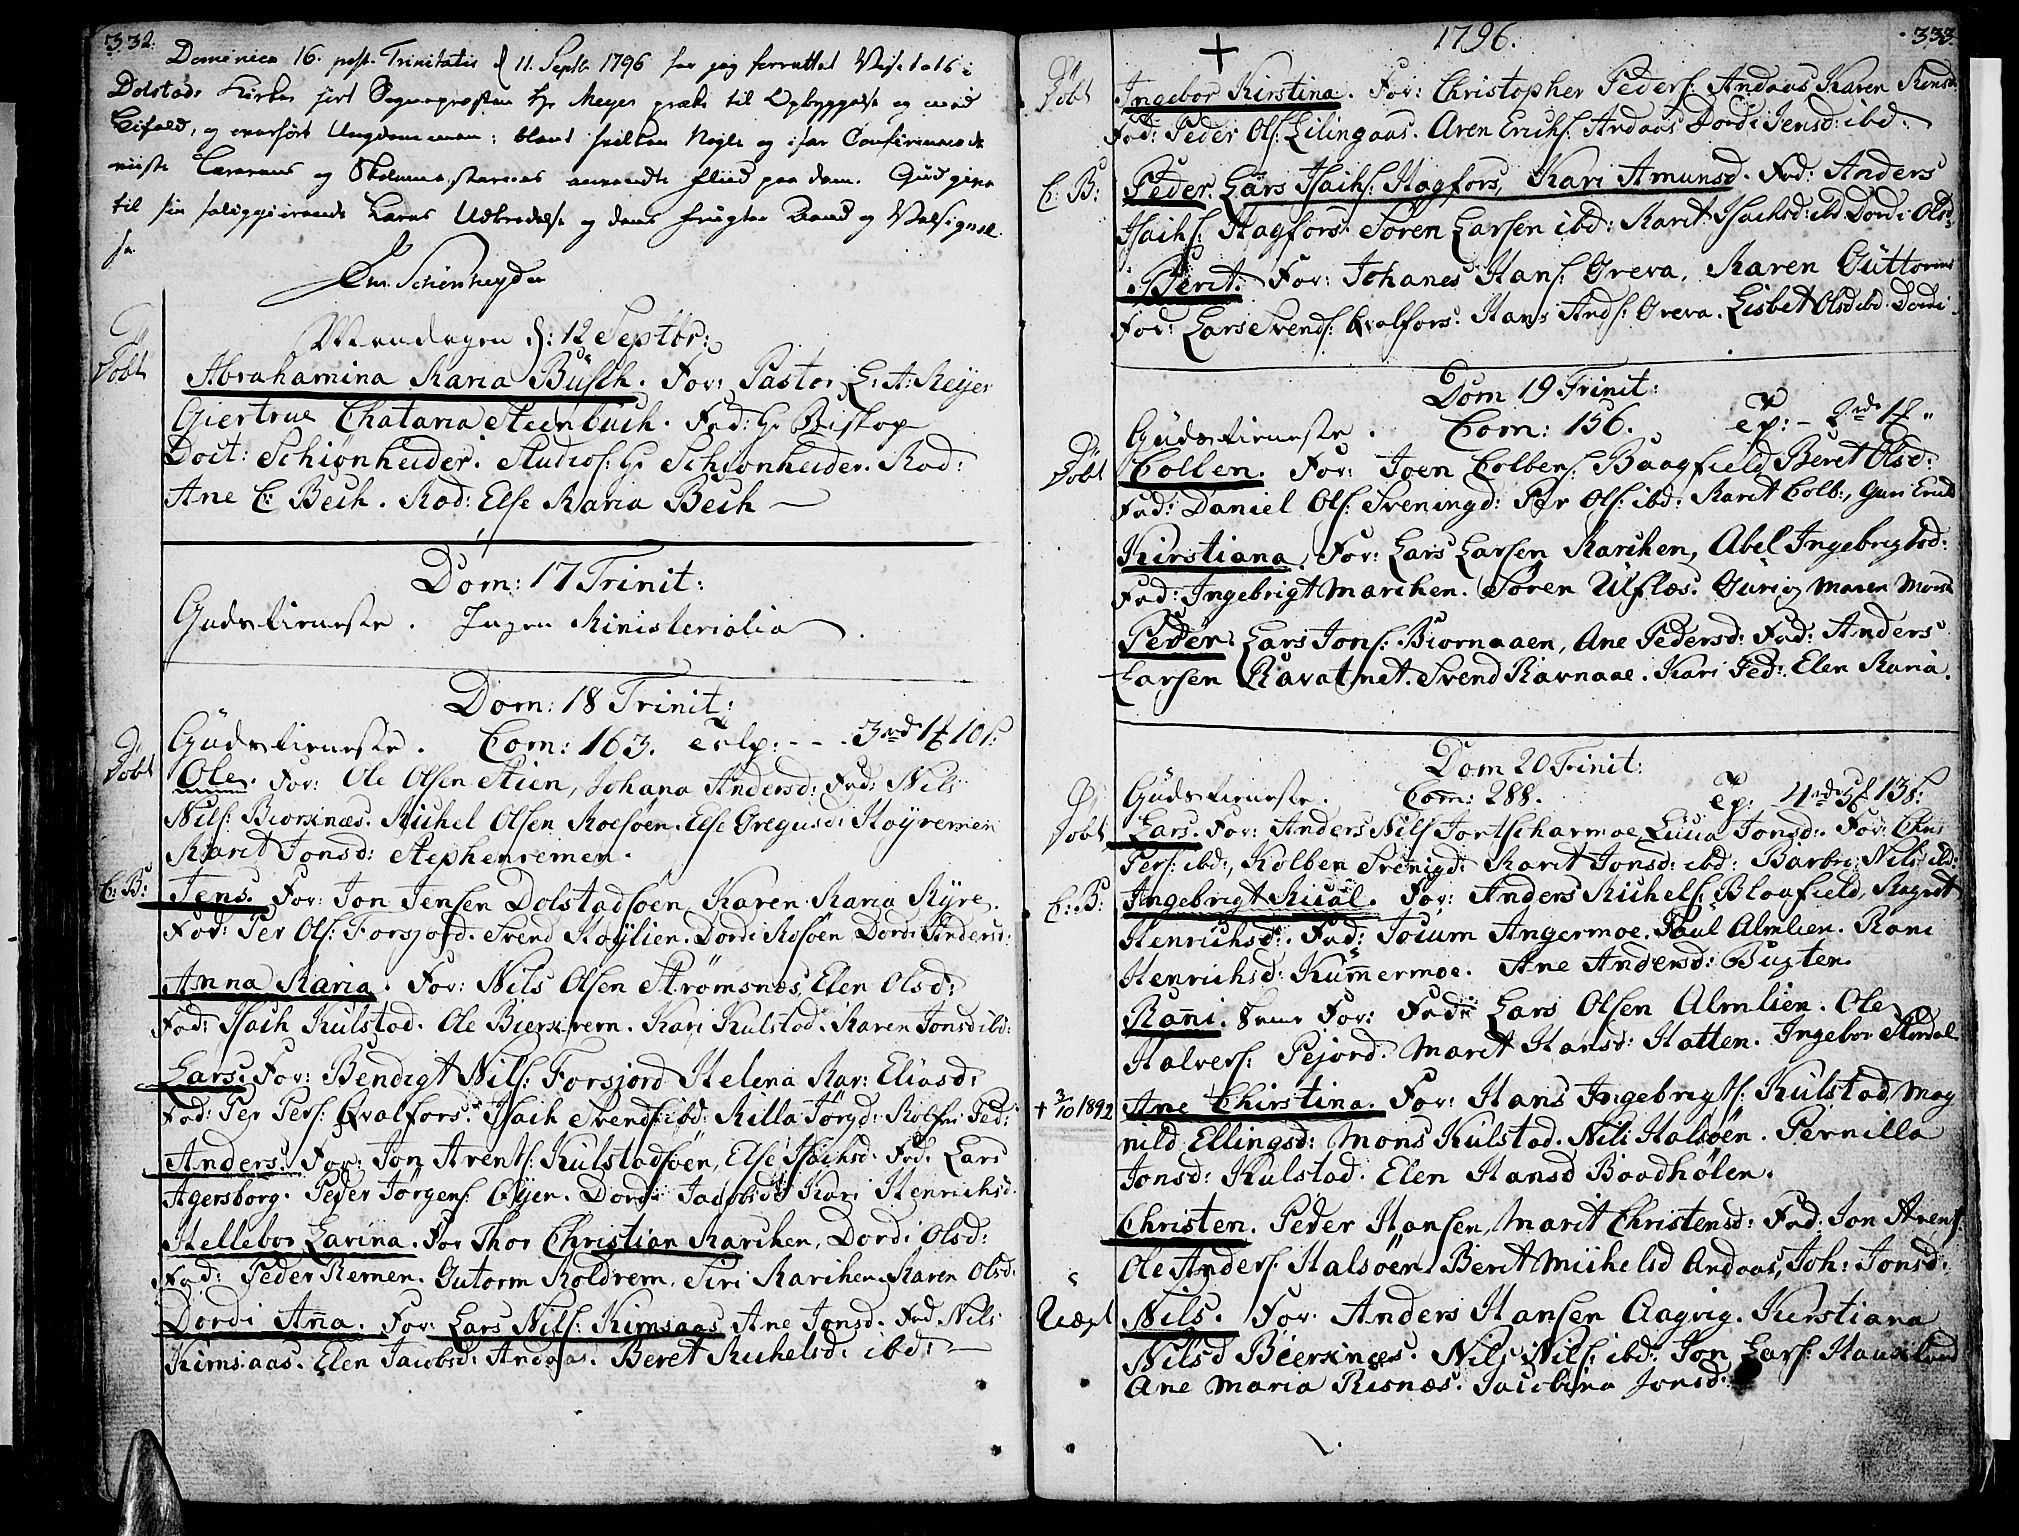 332.
Dominica 16. post. Trinitatis d 11. Septb. 1796 har jeg forrettet Visitats i
Dolstads Kirke, hørt Sognepræsten Hr Meyer præke til Opbyggelse og med
Bifald, og overhørt Ungdommen; blant hvilken Nogle og især Confirmerede
viiste Lærerens og Skolemesternes anvendte Fliid paa dem. Gud give
til sin saliggiørende Læres Udbredelse og dens Frugter Naade og Velsignel
se
Chr. Schönheyder
Mandagen d: 12 Septbr:
Døbt
Abrahamina Maria Busch. For: Pastor L: A: Meyer
Giertrue Chataria Steenbuch. Fad: Hr Biskop
Doct: Schiønheider. Studios: Hr Schiønheider. Mad:
Ane C: Bech. Mad: Else Maria Bech
Dom: 17 Trinit:
Gudstieneste. Ingen Ministerialia.
Dom: 18 Trinit:
Gudstieneste. Com: 163. exp: - - . 3rd 1 10s:
Døbt
Ole. For: Ole Olsen Stien, Johana Andersd: Fad: Nils
Nils: Biorknæs. Michel Olsen Moesøen. Else Gregusd: Høyremen
Marit Jonsd: Stephenremen.
C: B:
Jens. For: Jon Jensen Dolstadsøen, Karen Maria Myre.
Fad: Per Ols: Forsjord. Svend Høylien. Dordi Mosøen Dordi Andersd:
Anna Maria. For: Nils Olsen Strømsnes, Elen Olsd:
Fad: Isach Kulstad. Ole Bierkrem. Kari Kulstad. Karen Jonsd ibd:
Lars: For: Bendigt Nils: Forsjord Helena Mar: Eliasd:
Fad: Per Pers: Qvalfors. Isach Svends: ibd: Milla Jörgd: Ped:
Anders. For: Jon Arents: Kulstadsøen, Else Isachsd: Fad: Lars
Agersborg. Peder Jørgens: Øyen. Dordi Jacobsd Kari Henrichsd.
Hellebor Larina. For Thor Christian Marchen, Dordi Olsd:
Fad: Peder Remen. Gutorm Moldrem. Siri Marchen. Maren Olsd:
Dordi Anna. For: Lars Nils: Kimsaas Ane Jonsd. Fad Nils
Kimsaas. Elen Jacobsd: Andaas. Beret Michelsd: ibd:
1796.
333.
Døbt
Ingebor Kirstina. For: Christopher Peders: Andaas, Karen
Fad: Peder Ols: Lilingaas. Aren Erichs: Andaas Dordi Jensd: ibd.
C: B:
Peder. Lars Isachs: Hagfors, Kari Amunsd. Fad: Anders
Isachs: Hagfors. Søren Larsen ibd: Marit Isachsd: ibd Dordi Olsd:
Berit. For: Johanes Hans: Greva. Karen Guttorms
Fad: Lars Svends: Qvalfors. Hans Ands: Greva. Lisbet Olsd ibd. Dordi
Dom 19 Trinit:
Gudstieneste. Com: 156. ep: - 2rd 1
Døbt
Collen. For: Joen Colbens: Baagfield Beret Olsd:
Fad: Daniel Ols: Sveningd: Per Ols: ibd: Marit Colb:, Guri
Kirstiana. For: Lars Larsen Marchen, Abel Ingebrigtsd:
Fad: Ingebrigt Marchen. Søren Ulflæs. Guri og Maren
Peder Lars Jons: Biornaaen, Ane Pedersd: Fad: Anders
Larsen Ravatnet. Svend Ravnaae. Kari Ped: Elen Maria.
Dom 20 Trinit:
Gudstieneste. Com: 288. ep: 4rd 13s:
Døbt
Lars. For: Anders Nils Jordscharmoe, Jonsd: For: Chris
Pers: ibd:, Kolben Svenigd: Marit Jonsd: ibd: Barbro Nils ibd:
C: B:
Ingebrigt Mical. For: Anders Michels: Blaafield, Magrit
Henrichsd. Fad: Jocum Angermoe. Paul Almlien. Rani
Henrichsd: Kummermoe. Ane Andersd: Bugten.
Ranni. Samme For: Fad: Lars Olsen Almlien. Ole
Halvers: Pejord. Marit Hansd: Hatten. Ingebor
+ 3/10 1892
Ane Chirstina. For: Hans Ingebrigts: Kulstad, Mag
nild Ellingsd: Mons Kulstad. Nils Halsøen. Pernilla
Jonsd: Kulstad. Elen Hansd Baadhølen.
Christen. Peder Hansen, Marit Christensd: Fad: Jon Arens:
Ole Anders: Halsøen. Beret Michelsd Andaas, Joh: Jonsd:
Nils. For: Anders Hansen Aagvig. Kirstiana
Nilsd Bierknes. Nils Nils: ibd: Jon Lars:
Ane Maria Risnæs. Jacobina Jonsd: